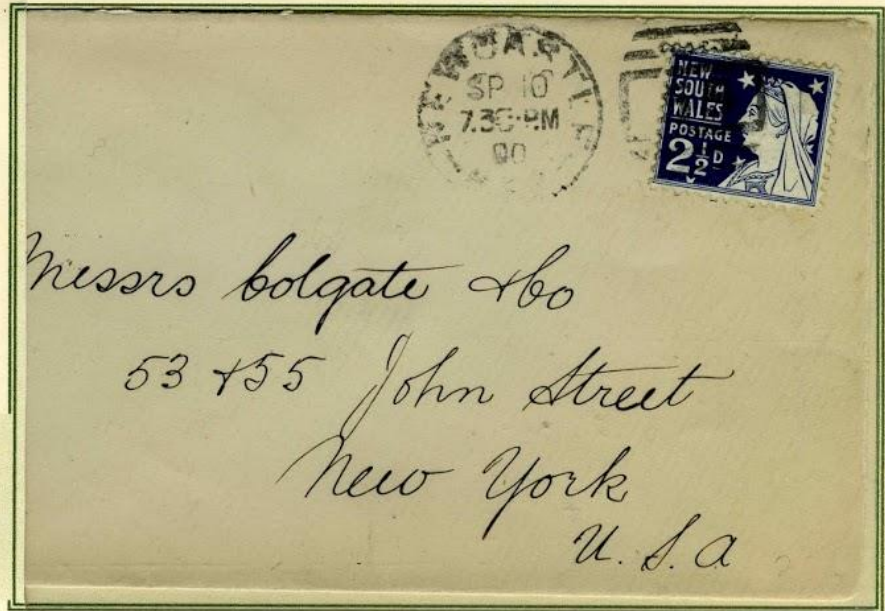 NEWCASTLE
SP 10
7.30 PM
00
NEW
SOUTH
WALES
POSTAGE
2½D
Messrs Colgate & Co
53 & 55 John Street
New York
U. S. A